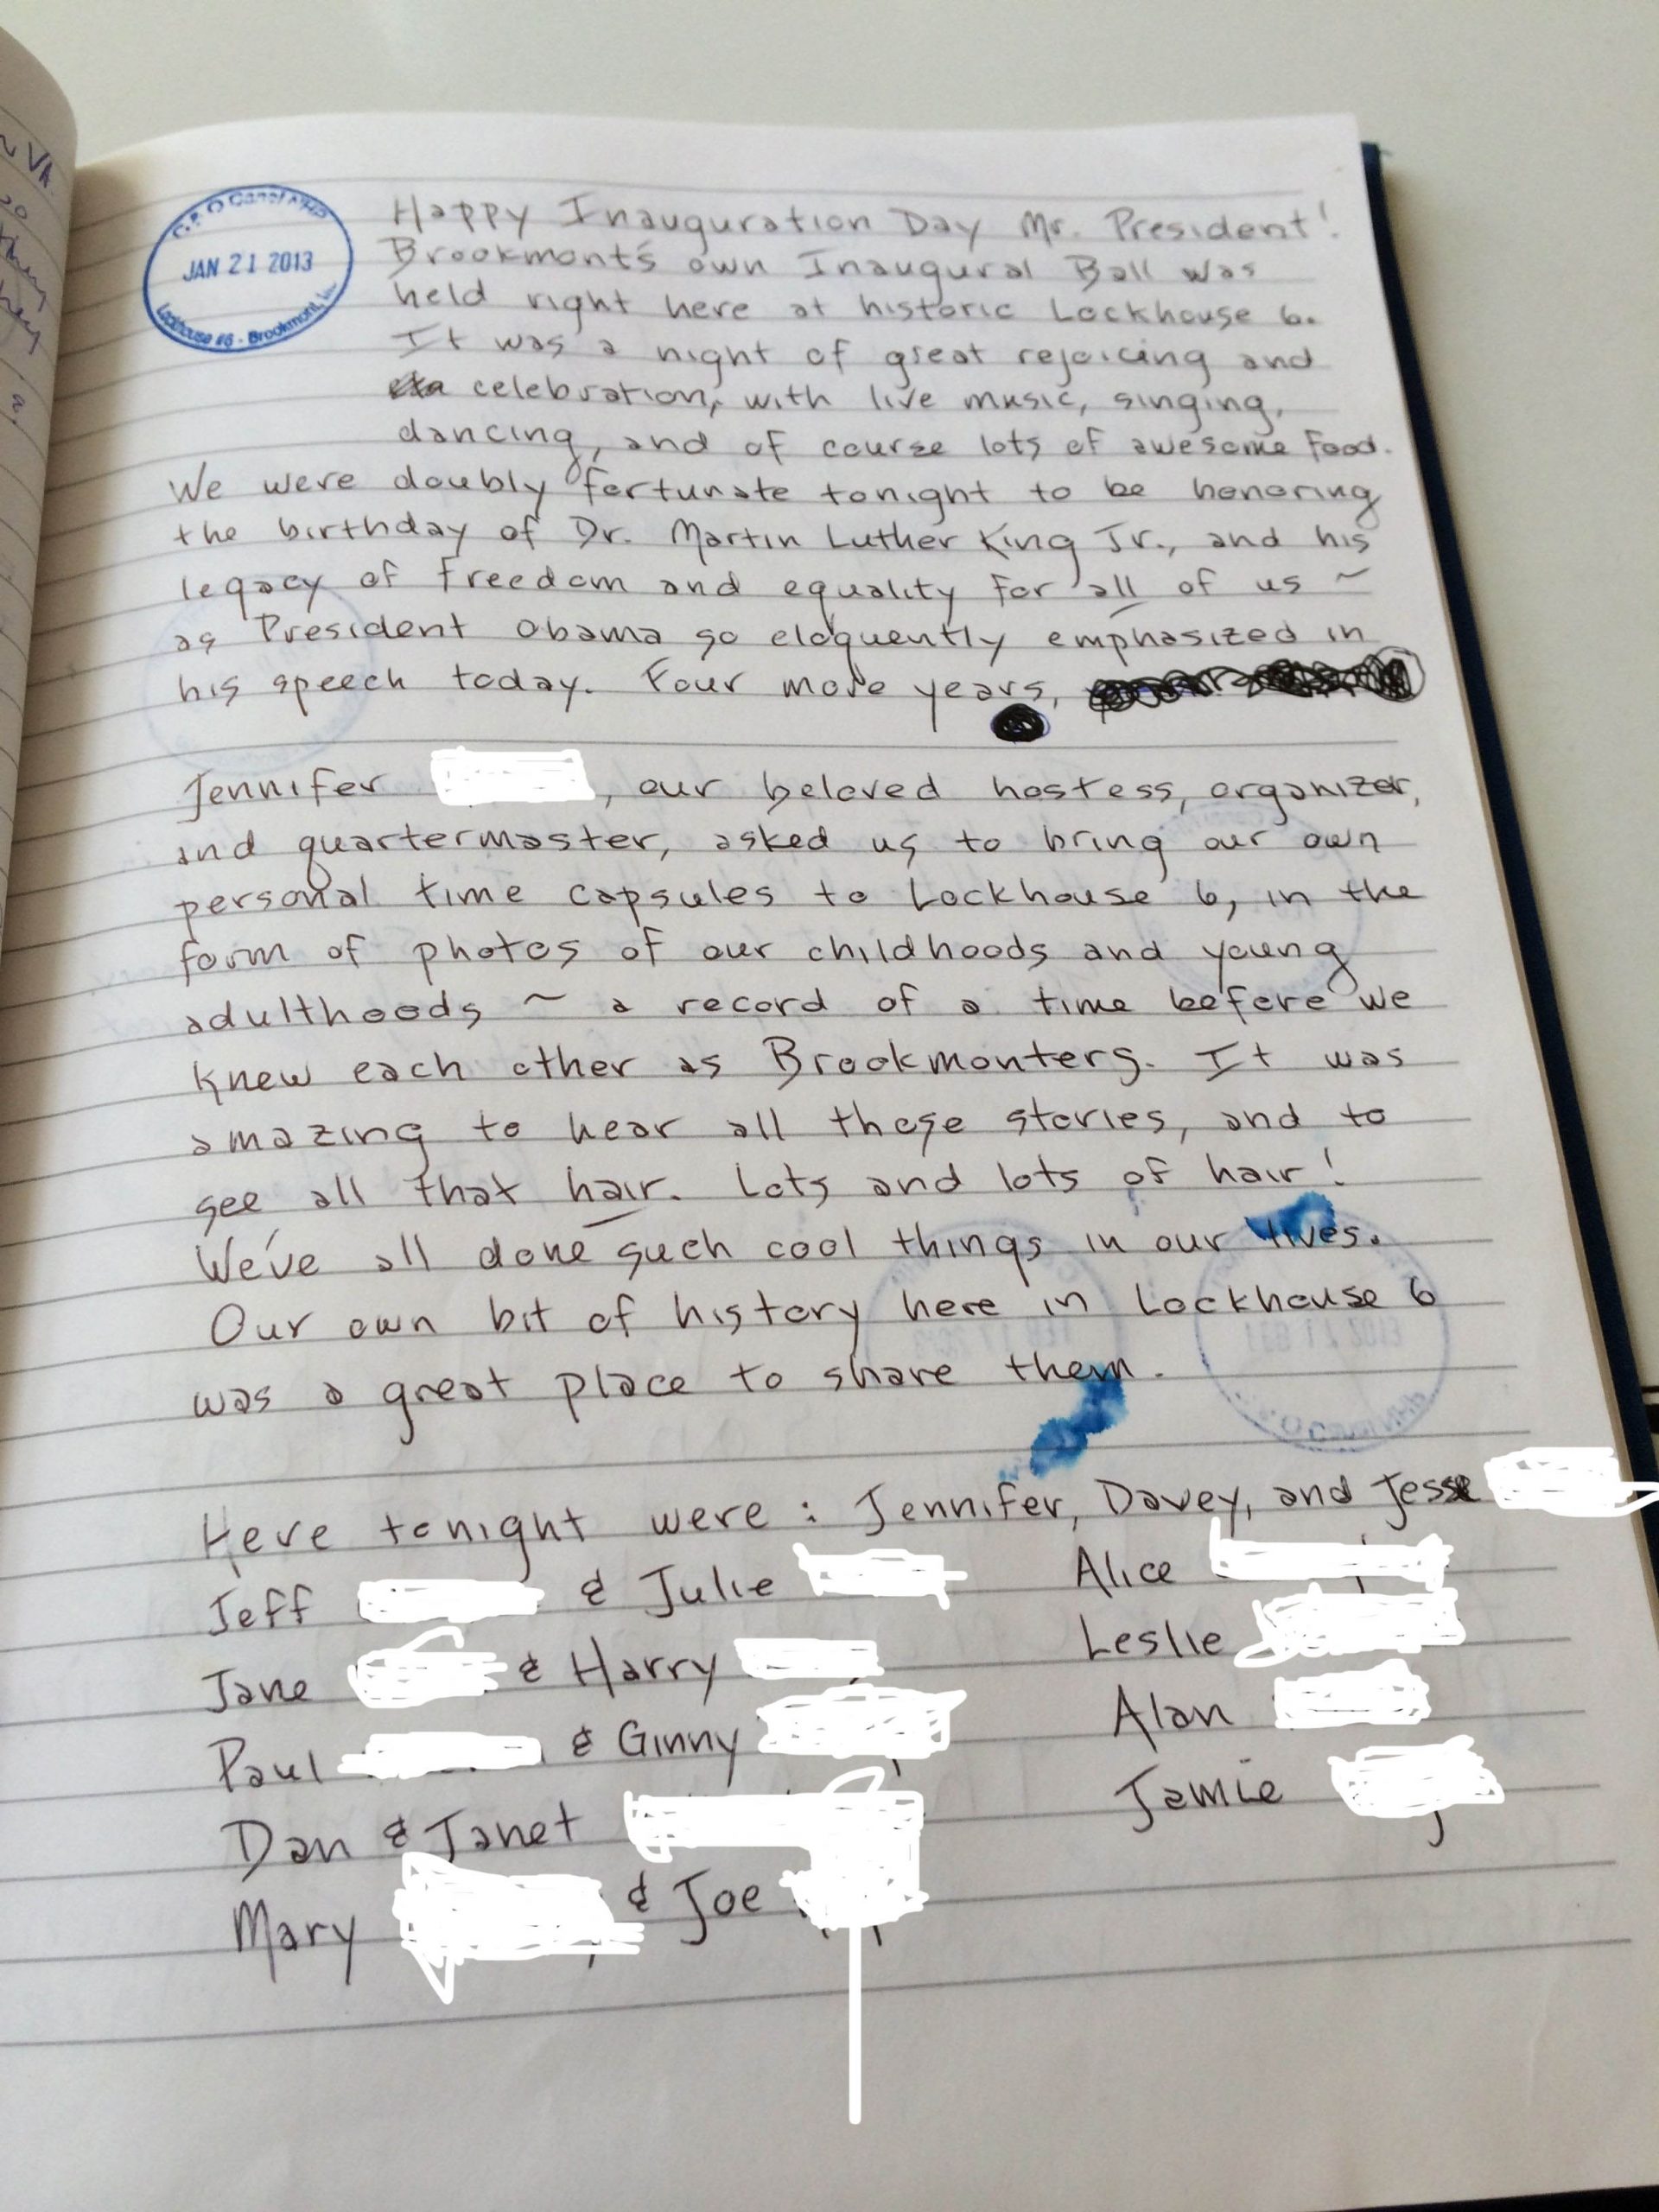 VA
20
C & O Canal NHP
JAN 21 2013
Lockhouse #6 - Brookmont,
Happy Inauguration Day Mr. President!
Brookmont's own Inaugural Ball was
held right here at historic Lockhouse 6.
It was a night of great rejoicing and
celebration, with live music, singing,
dancing, and of course lots of awesome food.
We were doubly fortunate tonight to be honoring
the birthday of Dr. Martin Luther King Jr., and his
legacy of freedom and equality for all of us ~
as President Obama so eloquently emphasized in
his speech today. Four more years,
Jennifer , our beloved hostess, organizer,
and quartermaster, asked us to bring our own
personal time capsules to Lockhouse 6, in the
form of photos of our childhoods and young
adulthoods ~ a record of a time before we
knew each other as Brookmonters. It was
amazing to hear all these stories, and to
see all that hair. Lots and lots of hair!
We've all done such cool things in our lives.
Our own bit of history here in Lockhouse 6
was a great place to share them.
Here tonight were: Jennifer, Davey, and Jesse
Jeff & Julie
Jane & Harry
Paul & Ginny
Dan & Janet
Mary & Joe
Alice
Leslie
Alan
Jamie